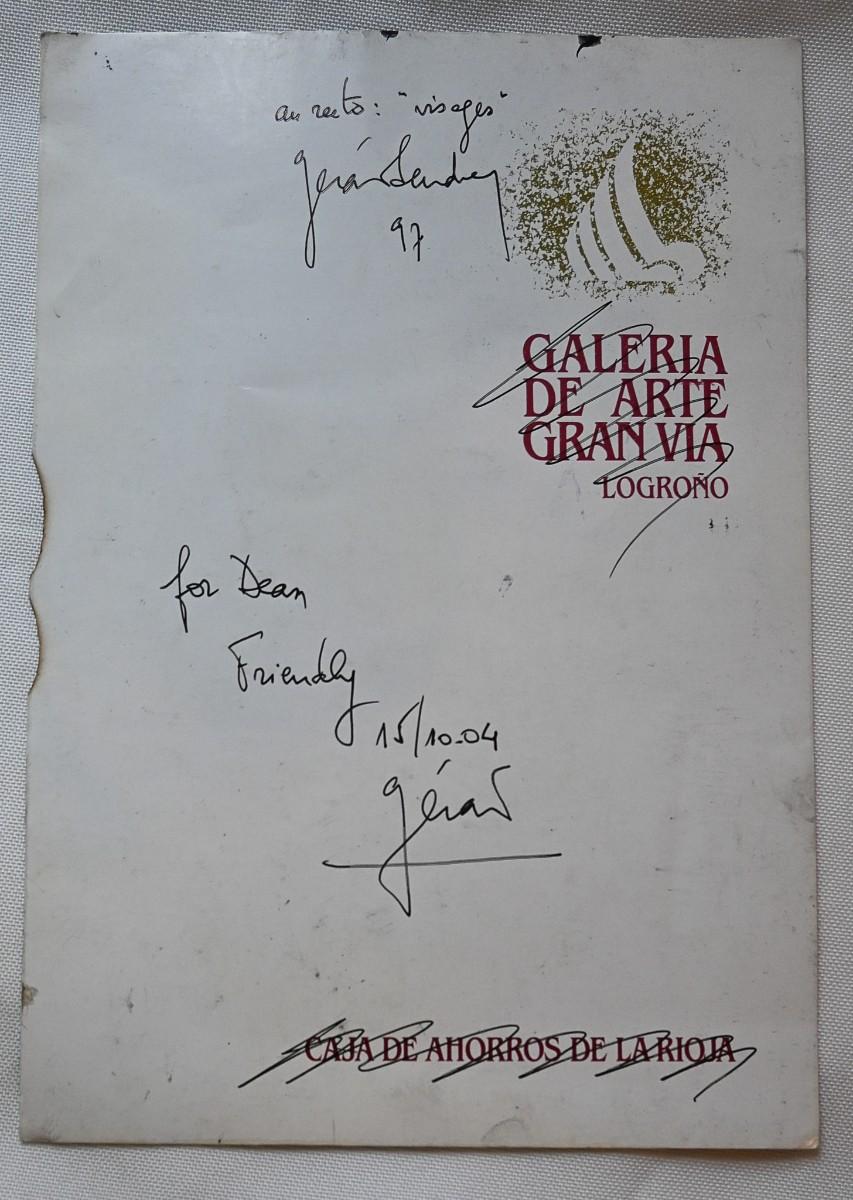 au recto : "visages"
Gérard Sendrey
97
GALERIA
DE ARTE
GRAN VIA
LOGROÑO
for Dean
Friendly
15/10-04
Gérard
CAJA DE AHORROS DE LA RIOJA